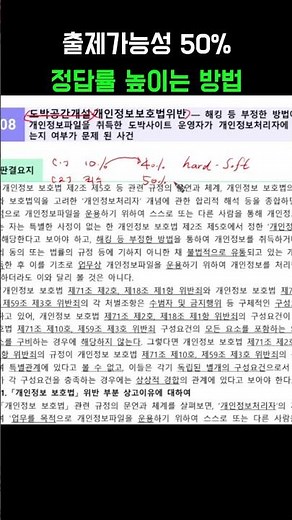 출제가능성 50%
정답률 높이는 방법
08 도박공간개설·개인정보보호법위반 - 해킹 등 부정한 방법
개인정보파일을 취득한 도박사이트 운영자가 개인정보처리자에
는지 여부가 문제 된 사건
10% 40% hard - soft
50%
판결요지
개인정보 보호법 제2조 제5호 등 관련 규정의 문언과 체계, 개인정보 보호법의
와 보호법익을 고려한 '개인정보처리자' 개념에 관한 합리적 해석 등을 종합하면
적으로 개인정보파일을 운용하기 위하여 스스로 또는 다른 사람을 통해 개인정
는 자는 특별한 사정이 없는 한 개인정보 보호법 제2조 제5호에서 정한 '개인
해당한다고 보아야 하고, 해킹 등 부정한 방법을 통하여 개인정보를 취득하거
의 동의 또는 법률의 규정 등에 기하지 아니한 채 불법적으로 유통되고 있는 개
득한 후 이를 기초로 업무상 개인정보파일을 운용하기 위하여 개인정보를 처리
하더라도 이와 달리 볼 것은 아니다.
개인정보 보호법 제71조 제2호, 제18조 제1항 위반죄와 개인정보
제71조 제10호, 제59조 제3호 위반죄의
제59조 제3호 위반죄의 각 처벌조항은 수범자 및 금지행위 등 구체적인 구성
하고 있어, 개인정보 보호법 제71조 제2호, 제18조 제1항 위반죄의
제71조 제10호, 제59조 제3호 위반죄의 구성요건의 모든 요소를 포함하는
소를 구비하는 경우에 해당하지 않는다. 그렇다면 개인정보 보호법 제71조 제2
항 위반죄의 규정이 개인정보 보호법 제71조 제10호, 제59조 제3호 위반죄의
여 특별관계에 있다고 볼 수 없고, 이들은 각기 독립된 별개의 구성요건으로서
가 각 구성요건을 충족하는 경우에는 상상적 경합의 관계에 있다고 보아야 한다.
1. 「개인정보 보호법」 위반 부분 상고이유에 대하여
「개인정보 보호법」 관련 규정의 문언과 체계를 살펴보면, '개인정보처리자'의
여 '업무를 목적으로 개인정보파일을 운용하기 위하여 스스로 또는 다른 사람